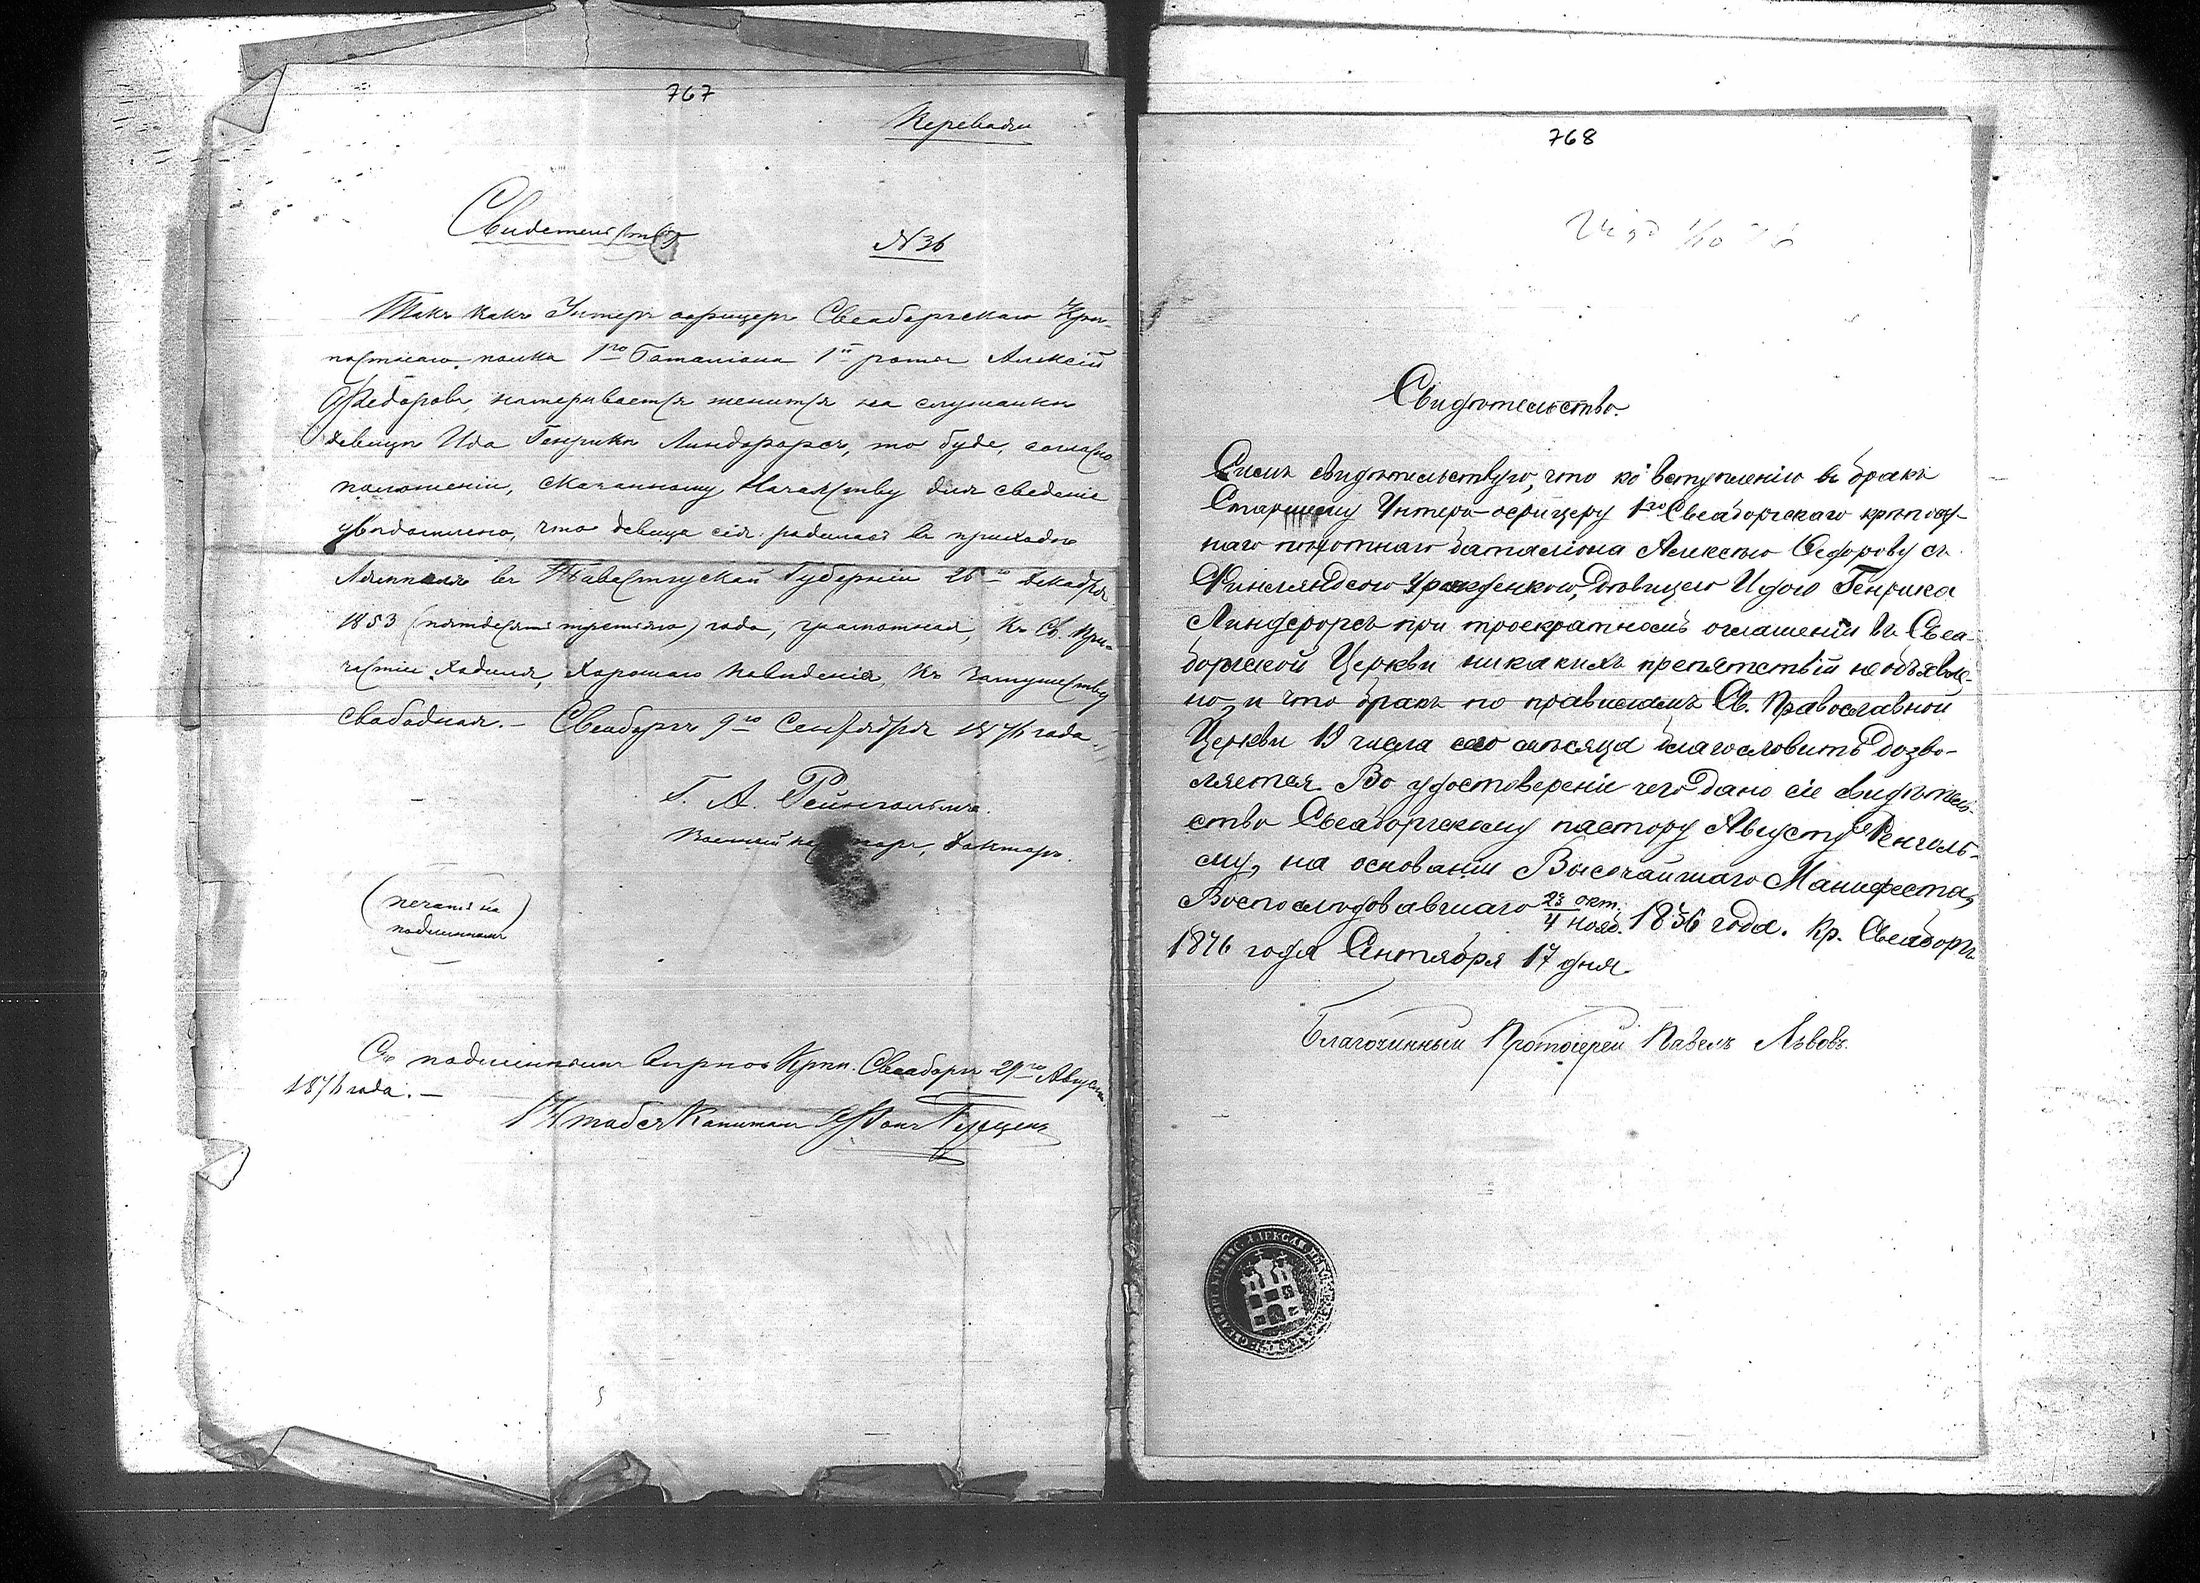 767
Переводъ
Свидетельство
№ 36
Такъ какъ Унтеръ офицеръ Свеаборгскаго Кре-
постнаго полка 1го Баталіона 1й роты Алексій
Федоровъ, намеривается женится на служанки
девици Ида Генрика Линдфорсъ, то буде, согласно
положеніи, сказанному Начальству для сведеніе
уведомлено, что девица сія родилась въ приходъ
въ Тавастгуской Губерніи 26го Декабря
1853 (пятьдесятъ третьяго) года, грамотная, къ Св. При-
частіи ходила, хорошаго поведенія, къ замужеству
свободная. — Свеаборгъ 9го Сентября 1876 года.
Г. А. Рейнгольмъ.
Военный пасторъ, докторъ.
(печать на
подлинномъ)
Съ подлиннымъ верно Креп. Свеаборгъ 29го Августа
1876 года. —
Штабсъ Капитанъ Фонъ
768
Свидѣтельство.
Симъ свидѣтельствую, что къ вступленію въ бракъ
Старшему Унтеръ-офицеру 1го Свеаборгскаго крѣпост-
наго пѣхотнаго баталіона Алексѣю Ѳедорову съ
Финляндскою Урожденкою, Дѣвицею Идою Генрика
Линдфорсъ при троекратномъ оглашеніи въ Свеа-
боргской Церкви никакихъ препятствій не объявле-
но, и что бракъ по правиламъ Св. Православной
Церкви 19 числа сего мѣсяца благословить дозво-
ляется. Во удостовереніе чего дано сіе свидѣтель-
ство Свеаборгскому пастору Августу Ренгольм-
му, на основаніи Высочайшаго Манифеста,
Воспослѣдовавшаго 23 окт./4 нояб. 1836 года. Кр. Свеаборгъ
1876 года Сентября 17 дня.
Благочинный Протоіерей Павелъ Львовъ.